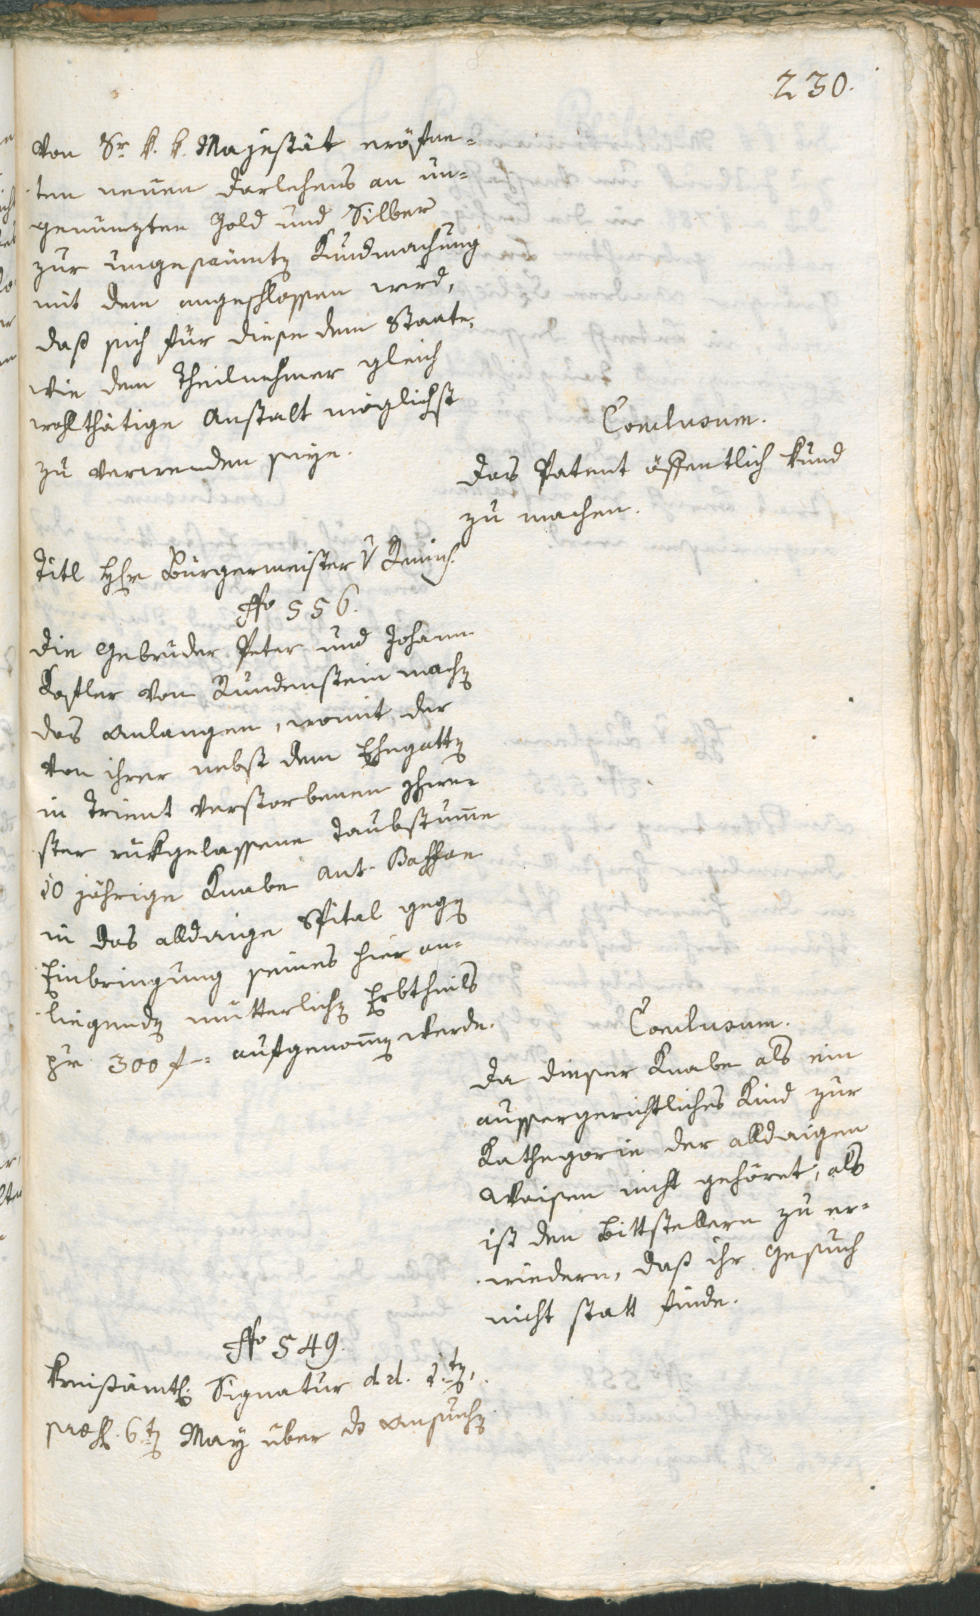 230.
von Sr k. k. Majestät eröfne-
ten neuen Darlehens an un-
gemünzten Gold und Silber
zur ungesäumten Kundmachung
mit dem angeschlossen wird,
daß sich für diese dem Staate,
wie dem Theilnehmer gleich
wohlthätige Anstalt möglichst
zu verwenden seye.
Conclusum.
Das Patent öffentlich kund
zu machen.
Titl Hr Bürgermeister v
No 556.
Die Gebrüder Peter und Johann
Kofler von Rundenstein machen
das Anlangen, womit der
von ihrer nebst dem Ehegatten
in Trient verstorbenen Schwe-
ster rükgelassene taubstumme
10 jährige Knabe Ant.
in das alldaige Spital gegen
Einbringung seines hier an-
liegenden mütterlichen Erbtheils
pr 300 f aufgenommen werde.
Conclusum.
Da dieser Knabe als ein
aussergerichtliches Kind zur
Kathegorie der alldaigen
Waisen nicht gehöret, als
ist den Bittstellern zu er-
wiedern, daß ihr Gesuch
nicht statt finde.
No 549.
Kreisämtl. Signatur dd. 2ten,
praes. 6ten May über das Ansuchen